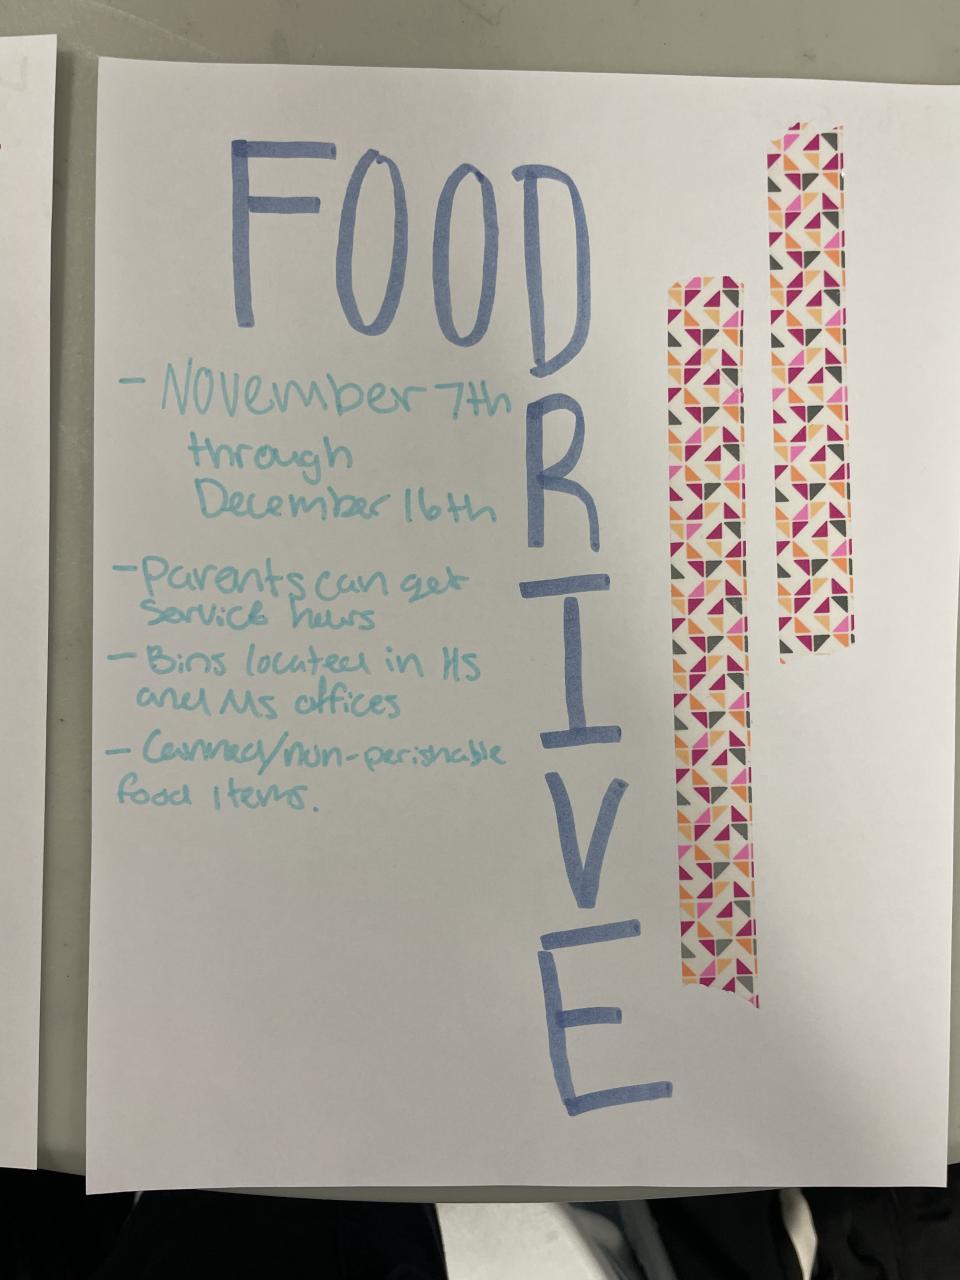 FOOD
DRIVE
- November 7th
through
December 16th
- Parents can get
service hours
- Bins located in HS
and MS offices
- Canned/non-perishable
food items.